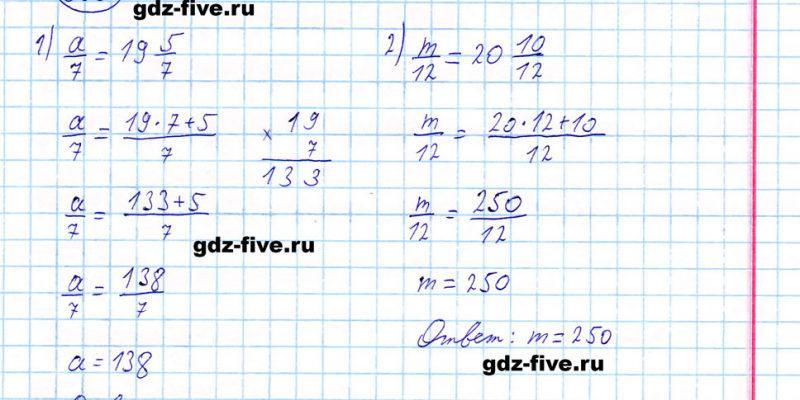 gdz-five.ru
1) a/7 = 19 5/7
a/7 = (19·7+5)/7
× 19
7
133
a/7 = (133+5)/7
gdz-five.ru
a/7 = 138/7
a = 138
2) m/12 = 20 10/12
m/12 = (20·12+10)/12
m/12 = 250/12
m = 250
Ответ: m = 250
gdz-five.ru